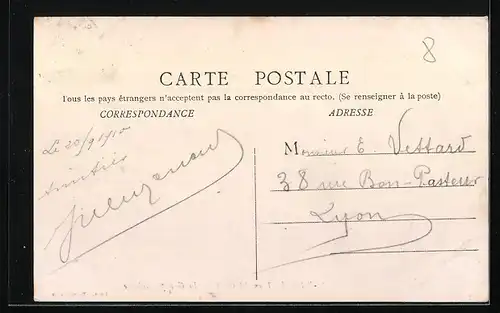 8
CARTE POSTALE
Tous les pays étrangers n'acceptent pas la correspondance au recto. (Se renseigner à la poste)
CORRESPONDANCE
ADRESSE
Le 20/9 1910
Monsieur E. Vettard
38 rue Bon-Pasteur
Lyon